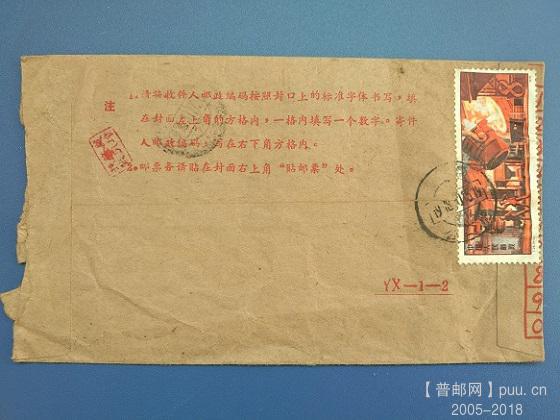 注
1.请将收件人邮政编码按照封口上的标准字体书写，填
在封面左上角的方格内，一格内填写一个数字。寄件
人邮政编码，写在右下角方格内。
2.邮票务请贴在封面右上角“贴邮票”处。
YX—1—2
中国人民邮政
【普邮网】puu.cn
2005-2018